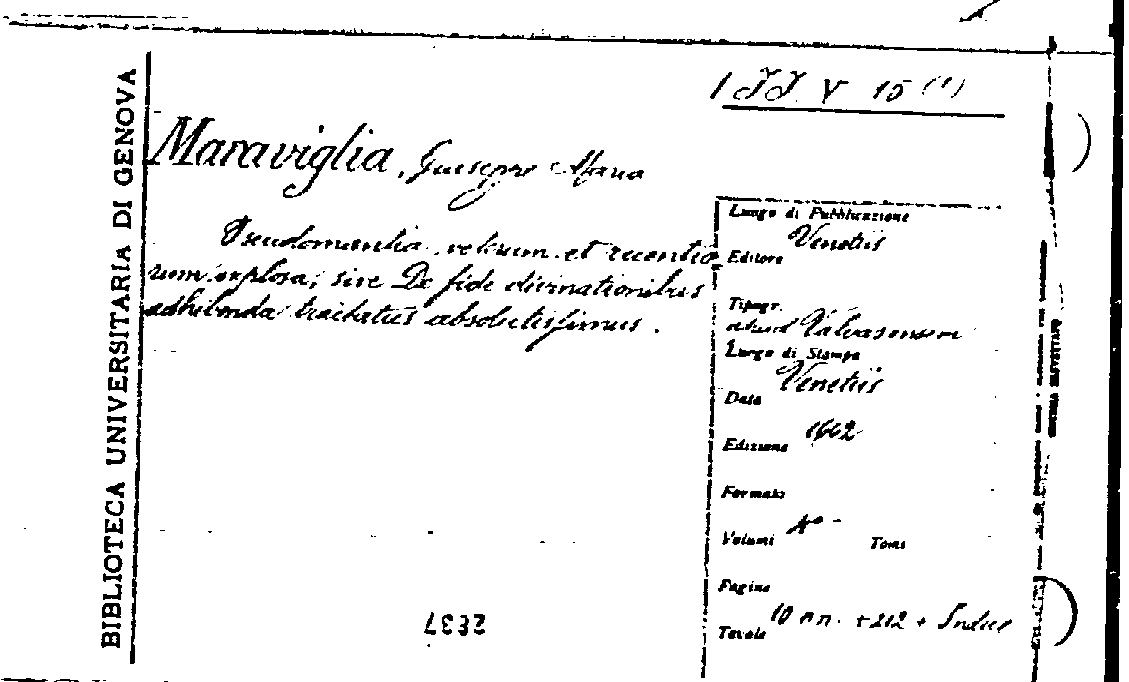 BIBLIOTECA UNIVERSITARIA DI GENOVA
1 JJ. V 15 (1)
Maraviglia, Giuseppe Maria
Pseudomantia veterum et recentio
rum explosa, sive De fide divinationibus
adhibenda tractatus absolutissimus.
Luogo di Pubblicazione
Venetiis
Editore
Tipogr.
apud Valvasensem
Luogo di Stampa
Venetiis
Data
1662
Edizione
Formato
4° -
Volumi Tomi
Pagine
10 nn. + 212 + Indice
Tavole
2837